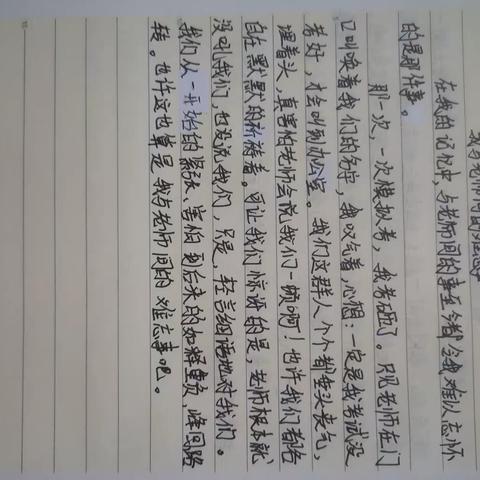 我与老师间的难忘事
在我的记忆中,与老师间的事至今都令我难以忘怀
的是那件事。
那一次,一次模拟考,我考砸了。只见老师在门
口叫唤着我们的名字,我叹气着,心想:一定是我考试没
考好,才会叫到办公室。我们这群人个个都垂头丧气,
埋着头,真害怕老师会说我们一顿啊!也许我们都各
自在默默的祈祷着。可让我们惊讶的是,老师根本就
没叫我们,也没说我们,只是,轻言细语地对我们。
我们从一开始的紧张、害怕到后来的如释重负,峰回路
转。也许这也算是我与老师间的难忘事吧。